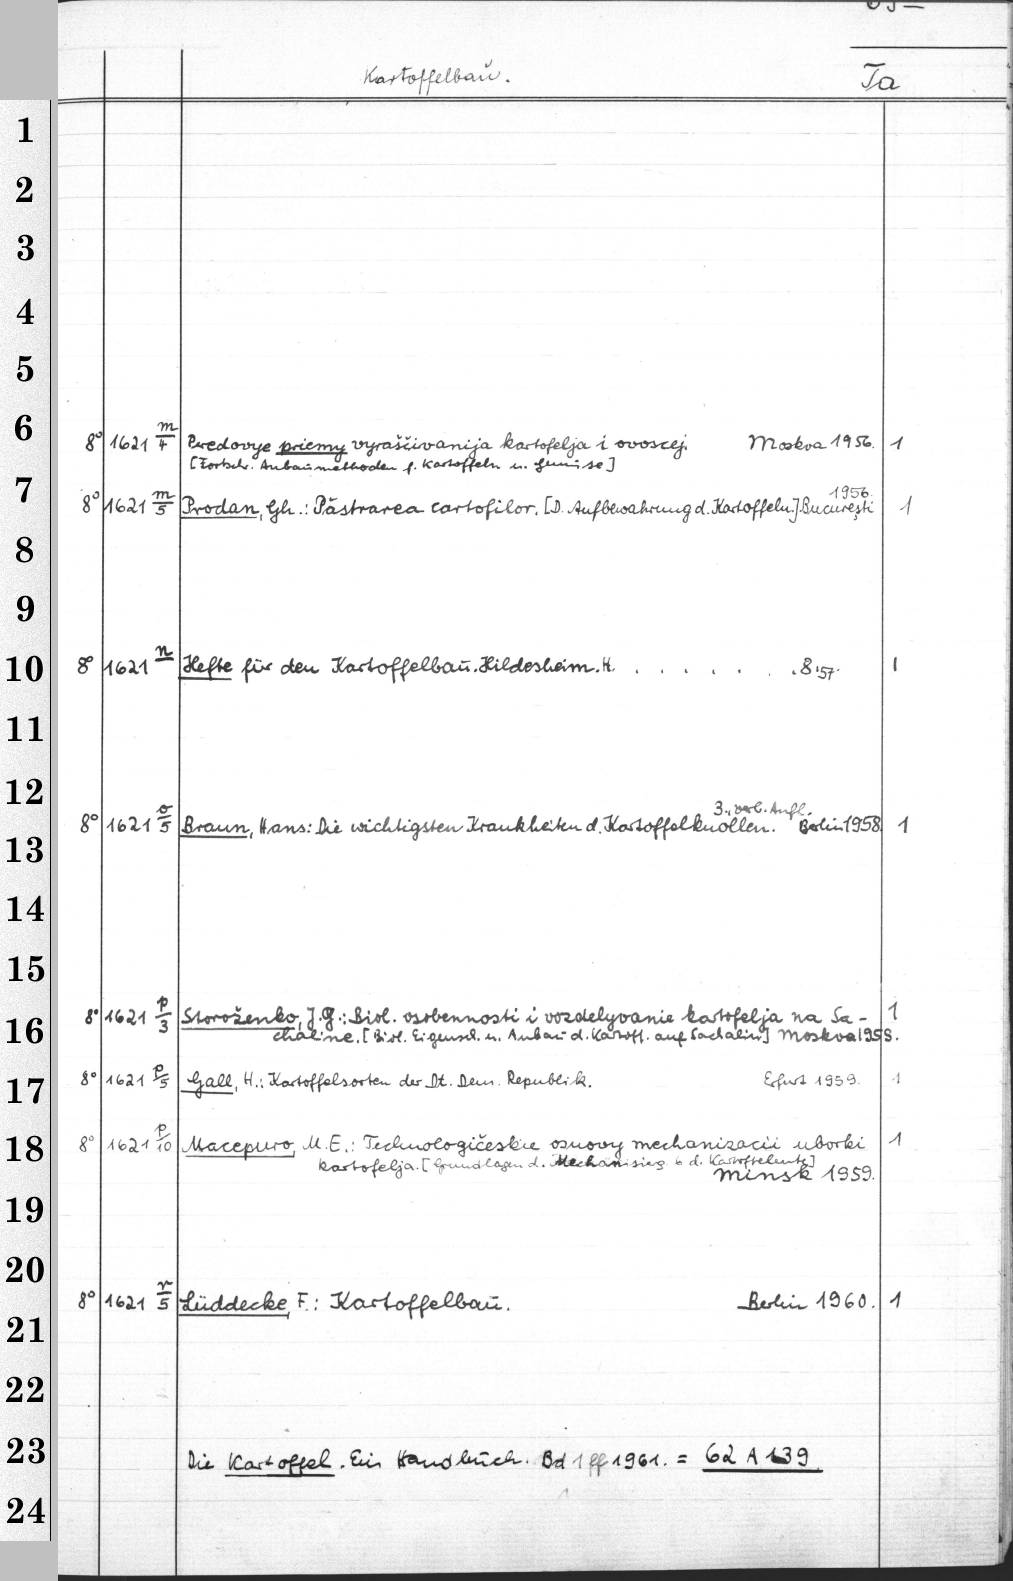 Kartoffelbau. Ta
1
2
3
4
5
6
8° 1621 m/4 Peredovye priemy vyraščivanija kartofelja i ovoscej. Moskva 1956. 1
[Fortschr. Anbaumethoden f. Kartoffeln u. Gemüse]
7
1956.
8° 1621 m/5 Prodan, Gh.: Păstrarea cartofilor. [D. Aufbewahrung d. Kartoffeln.] București 1
8
9
10 8° 1621 n Hefte für den Kartoffelbau. Hildesheim. H. . . . . . . . 8.'57. 1
11
12
3., verb. Aufl.
8° 1621 o/5 Braun, Hans: Die wichtigsten Krankheiten d. Kartoffelknollen. Berlin 1958. 1
13
14
15
8° 1621 p/3 Storoženko, J. G.: Biol. osobennosti i vozdelyvanie kartofelja na Sa- 1
16 chaline. [Biol. Eigensch. u. Anbau d. Kartoff. auf Sachalin] Moskva 1958.
17 8° 1621 p/5 Gall, H.: Kartoffelsorten der Dt. Dem. Republik. Erfurt 1959. 1
18 8° 1621 p/10 Macepuro, M. E.: Technologičeskie osnovy mechanizacii uborki 1
kartofelja. [Grundlagen d. Mechanisierg d. Kartoffelernte]
Minsk 1959.
19
20
8° 1621 r/5 Lüddecke, F.: Kartoffelbau. Berlin 1960. 1
21
22
23 Die Kartoffel. Ein Handbuch. Bd 1 ff 1961. = 62 A 139
24